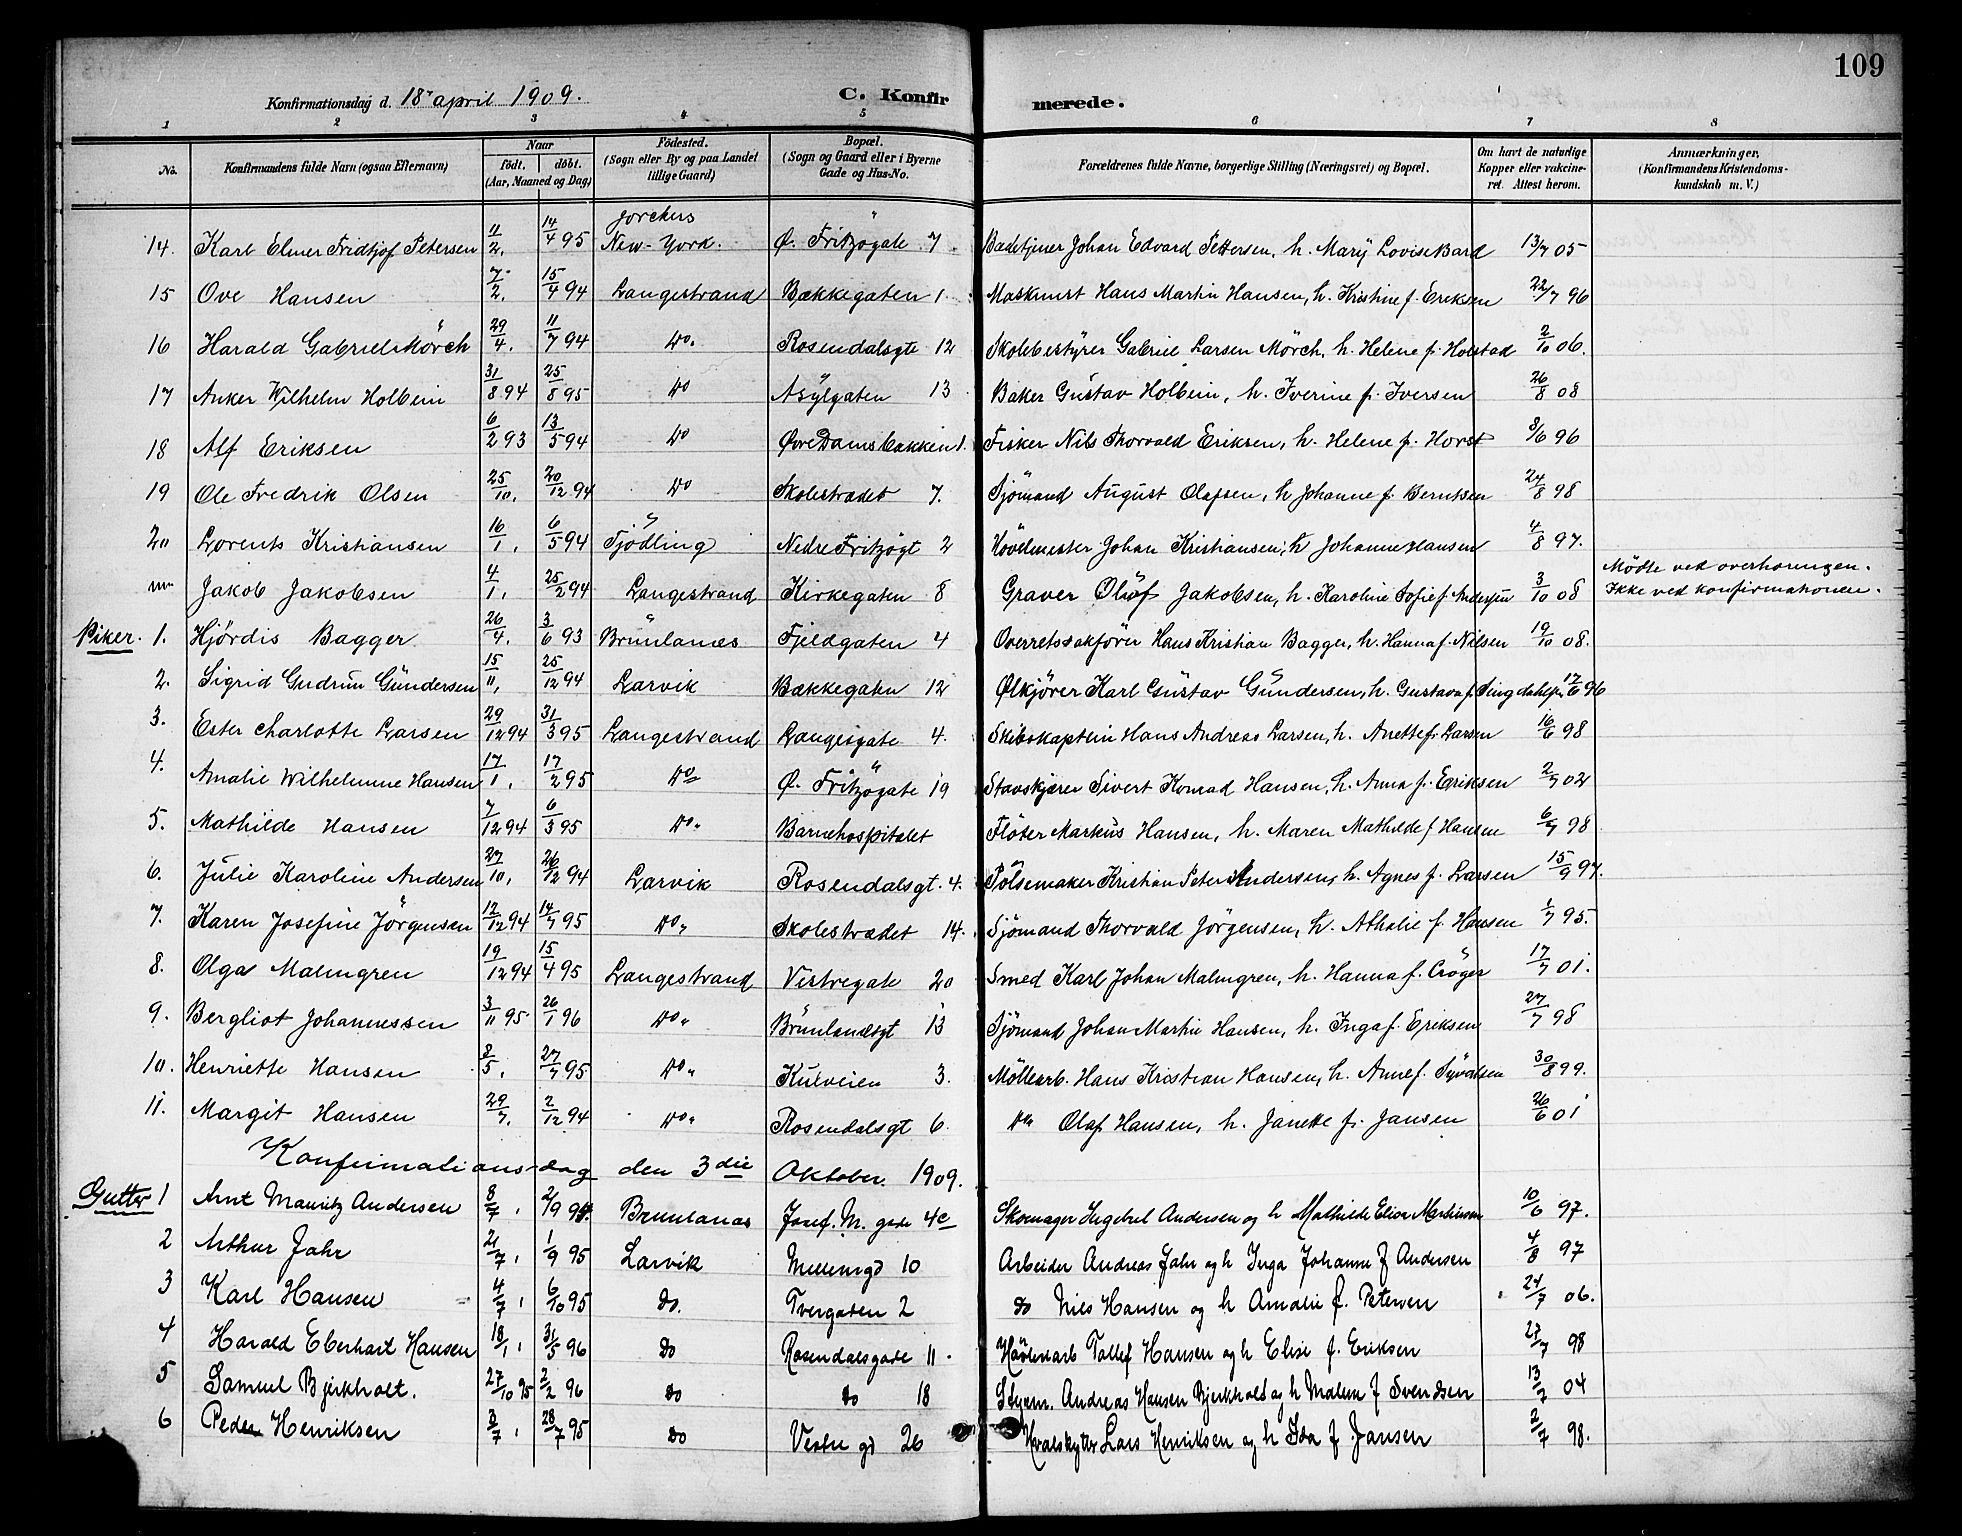 109
Konfirmationsdag d. 18 april 1909. C. Konfirmerede.
1 2 3 4 5 6 7 8
No. Konfirmandens fulde Navn (ogsaa Efternavn) Naar født. døbt. (Aar, Maaned og Dag) Fødested. (Sogn eller By og paa Landet tillige Gaard) Bopæl. (Sogn og Gaard eller i Byerne Gade og Hus-No. Forældrenes fulde Navne, borgerlige Stilling (Næringsvei) og Bopæl. Om havt de naturlige Kopper eller vakcineret. Attest herom. Anmærkninger, (Konfirmandens Kristendomskundskab m. V.)
14. Karl Elmer Fridtjof Petersen 11/2. 14/4 95 New-York. Ø. Fritzøgate 7. Badetjener Johan Edvard Pettersen, h. Mary Lovise Bard 13/7 05
15 Ove Hansen 7/2. 15/4 94 Langestrand Bækkegaten 1 Maskinist Hans Martin Hansen, h. Kristine f. Eriksen 22/7 96
16 Harald Gabriel Mörch 29/4. 11/7 94 Do. Rosendalsgte 12 Skolebestyrer Gabriel Larsen Mörch, h. Helene f. Holstad 2/10 06.
17 Anker Wilhelm Holbein 31/8 94 25/8 95 Do Asylgaten 13 Baker Gustav Holbein, h. Iverine f. Iversen 26/8 08
18 Alf Eriksen 6/2 93 13/5 94 Do Øvre Damsbakken 1. Fisker Nils Thorvald Eriksen, h. Helene f. Horst 8/6 96
19 Ole Fredrik Olsen 25/10. 20/12 94 Do Skolestrædet 7. Sjömand August Olafsen, h Johanne f. Berntsen 24/8 98
20 Lorents Kristiansen 16/1. 6/5 94 Tjödling Nedre Fritzögt 2 Hövelmester Johan Kristiansen, h Johanne Hansen 4/8 97.
Jakob Jakobsen 4/1. 25/2 94 Langestrand Kirkegaten 8 Graver Oluf Jakobsen, h. Karoline Sofie f Andersen 3/10 08 Mödte ved overhöringen. Ikke ved konfirmationen.
Piker. 1. Hjördis Bagger 26/4. 3/6 93 Brunlanes Fjeldgaten 4 Overretssakförer Hans Kristian Bagger, h. Hanna f. Nilsen 19/10 08.
2. Sigrid Gudrun Gundersen 15/11. 25/12 94 Larvik Bækkegaten 12 Ølkjörer Karl Gustav Gundersen, h. Gustava f. 17/6 96
3. Ester Charlotte Larsen 29/12 94 31/3 95 Langestrand Langesgate 4. Skibskaptein Hans Andreas Larsen, h. Anette f. Larsen 16/6 98
4. Amalie Wilhelmine Hansen 17/1. 17/2 95 Do Ø. Fritzögate 19 Stavskjærer Sivert Konrad Hansen, h. Anna f. Eriksen 2/7 02
5. Mathilde Hansen 7/12 94 6/3 95 Do. Barnehospitalet Flöter Markus Hansen, h. Maren Mathilde f Hansen 6/7 98
6. Julie Karoline Andersen 27/10. 26/12 94 Larvik Rosendalsgt. 4. Pölsemaker Kristian Peter Andersen, h. Agnes f. Larsen 15/9 97.
7. Karen Josefine Jörgensen 12/12 94 14/7 95 Do. Skolestrædet 14. Sjömand Thorvald Jörgensen, h. Athalie f. Hansen 1/7 95.
8. Olga Malmgren 19/12 94 15/4 95 Langestrand Vestregate 20 Smed Karl Johan Malmgren, h. Hanna f. Cröger 17/7 01.
9. Bergliot Johannessen 3/11 95 26/1 96 Do. Brunlanesgt 13 Sjömand Johan Martin Hansen, h. Inga f. Eriksen 27/7 98
10. Henriette Hansen 2/5. 27/7 95 Do. Kulveien 3. Möllearb. Hans Kristian Hansen, h. Anne f. Syvertsen 30/8 99.
11. Margit Hansen 29/7. 2/12 94 Do. Rosendalsgt 6. Do Olaf Hansen, h. Janette f. Jansen 26/6 01
Konfirmationsdag den 3die Oktober 1909.
Gutter 1 Arnt Mauritz Andersen 8/7. 2/9 94. Brunlanes Josef. M. gade 4c Skomager Ingebret Andersen og h Mathilde Elisa Martinsen 10/6 97.
2 Arthur Jahr 21/7. 1/9 95 Larvik Mellemgd 10 Arbeider Andreas Jahr og h Inga Johanne f Andersen 4/8 97
3 Karl Hansen 4/7. 6/10 95 do. Tvergaten 2 do Nils Hansen og h Amalie f. Petersen 24/7 06.
4 Harald Eberhart Hansen 18/1. 31/5 96 do Rosendalsgade 11. Høvlearb Tollef Hansen og h Elise f. Eriksen 27/7 98
5 Samuel Bjerkholt. 27/10 95 2/2 96 do do 18 Styrm. Andreas Hansen Bjerkholt og h Malene f Svendsen 13/7 04
6 Peder Henriksen 3/7. 28/7 95 do Vestre gd 26 Hvalskytter Lars Henriksen og h Ida f Jansen 2/7 98.